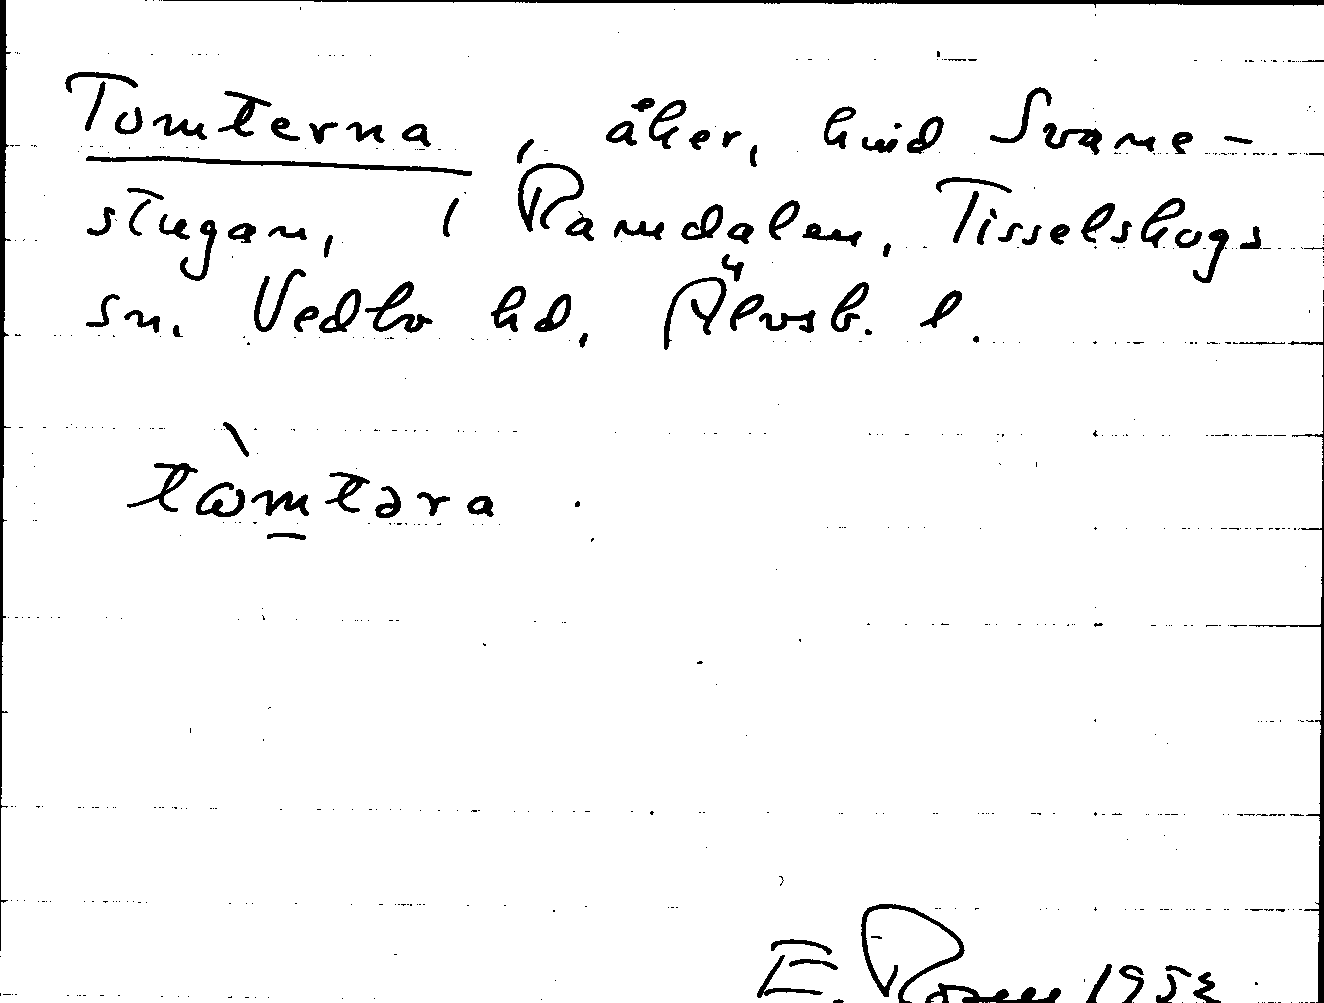 Tomterna, åker, hmd Svane-
stugan, i Ramdalen, Tisselskogs
sn. Vedbo hd, Älvsb. l.
tωmtəra
E. Rosell 1953